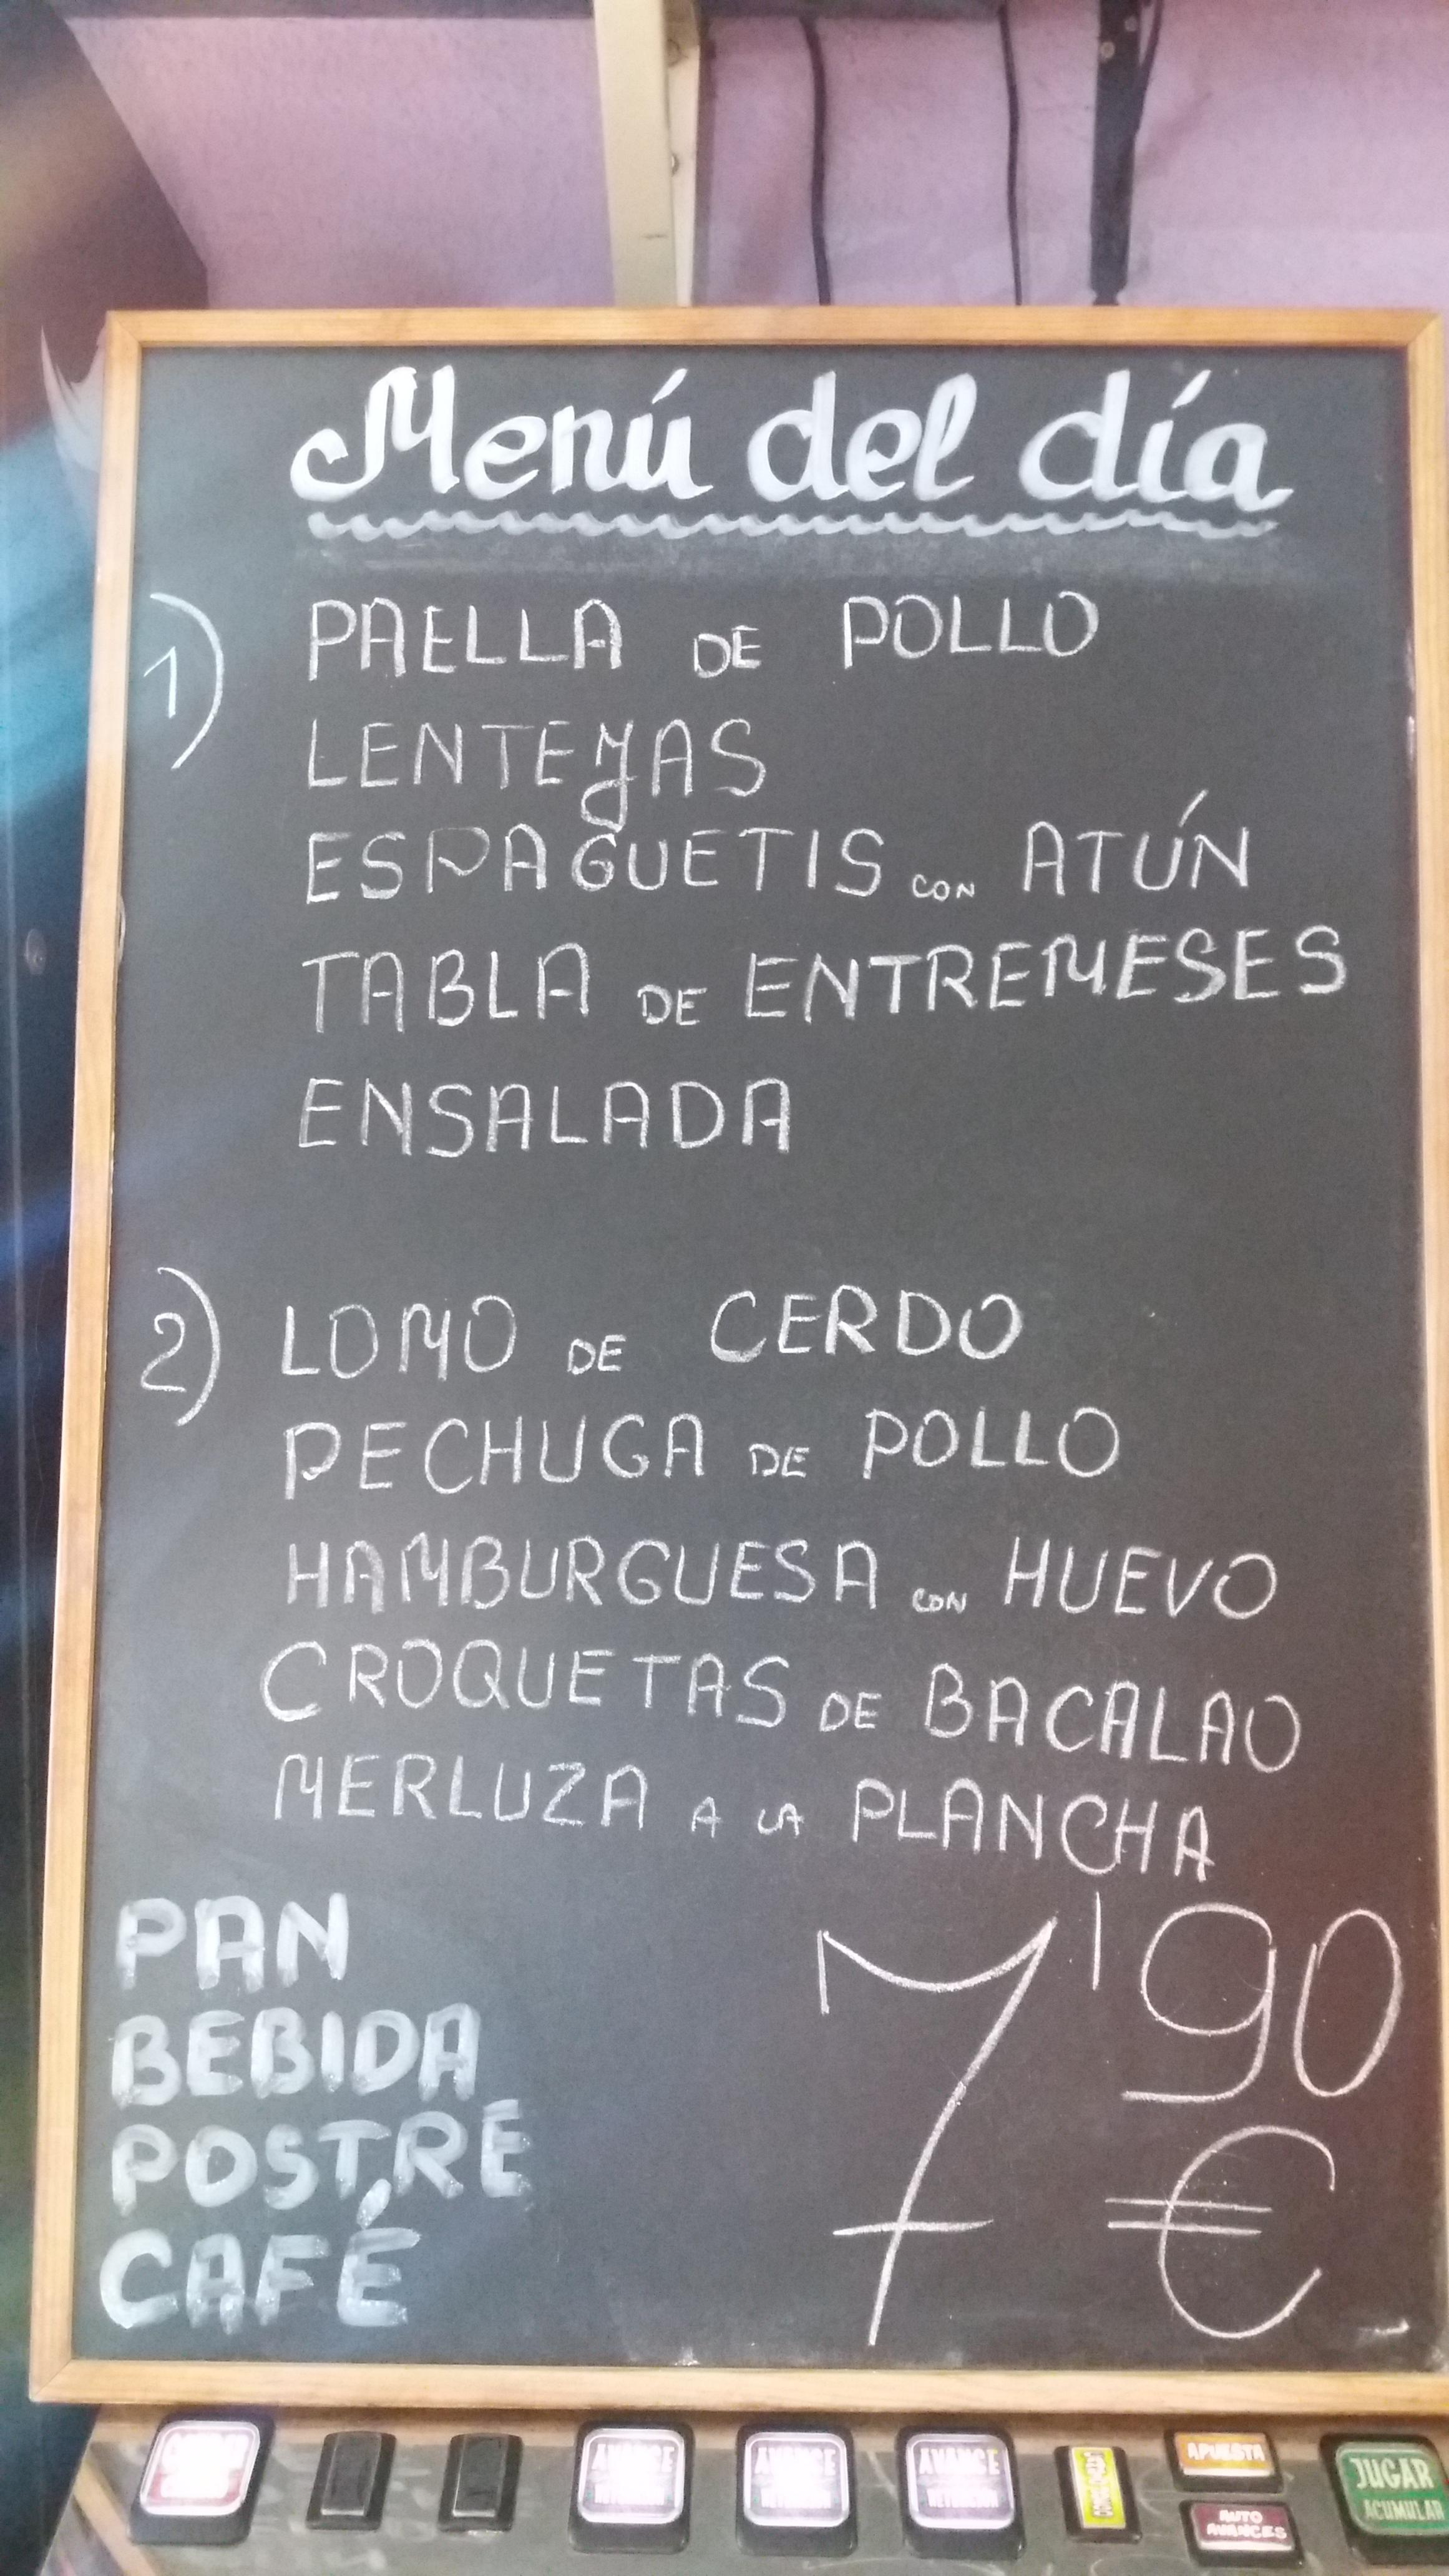 Menú del día
1) PAELLA DE POLLO
LENTEJAS
ESPAGUETIS CON ATÚN
TABLA DE ENTREMESES
ENSALADA
2) LOMO DE CERDO
PECHUGA DE POLLO
HAMBURGUESA CON HUEVO
CROQUETAS DE BACALAO
MERLUZA A LA PLANCHA
PAN
BEBIDA
POSTRE
CAFÉ
7'90
€
AVANCE
AVANCE
AVANCE
APUESTA
AUTO
AVANCES
JUGAR
ACUMULAR